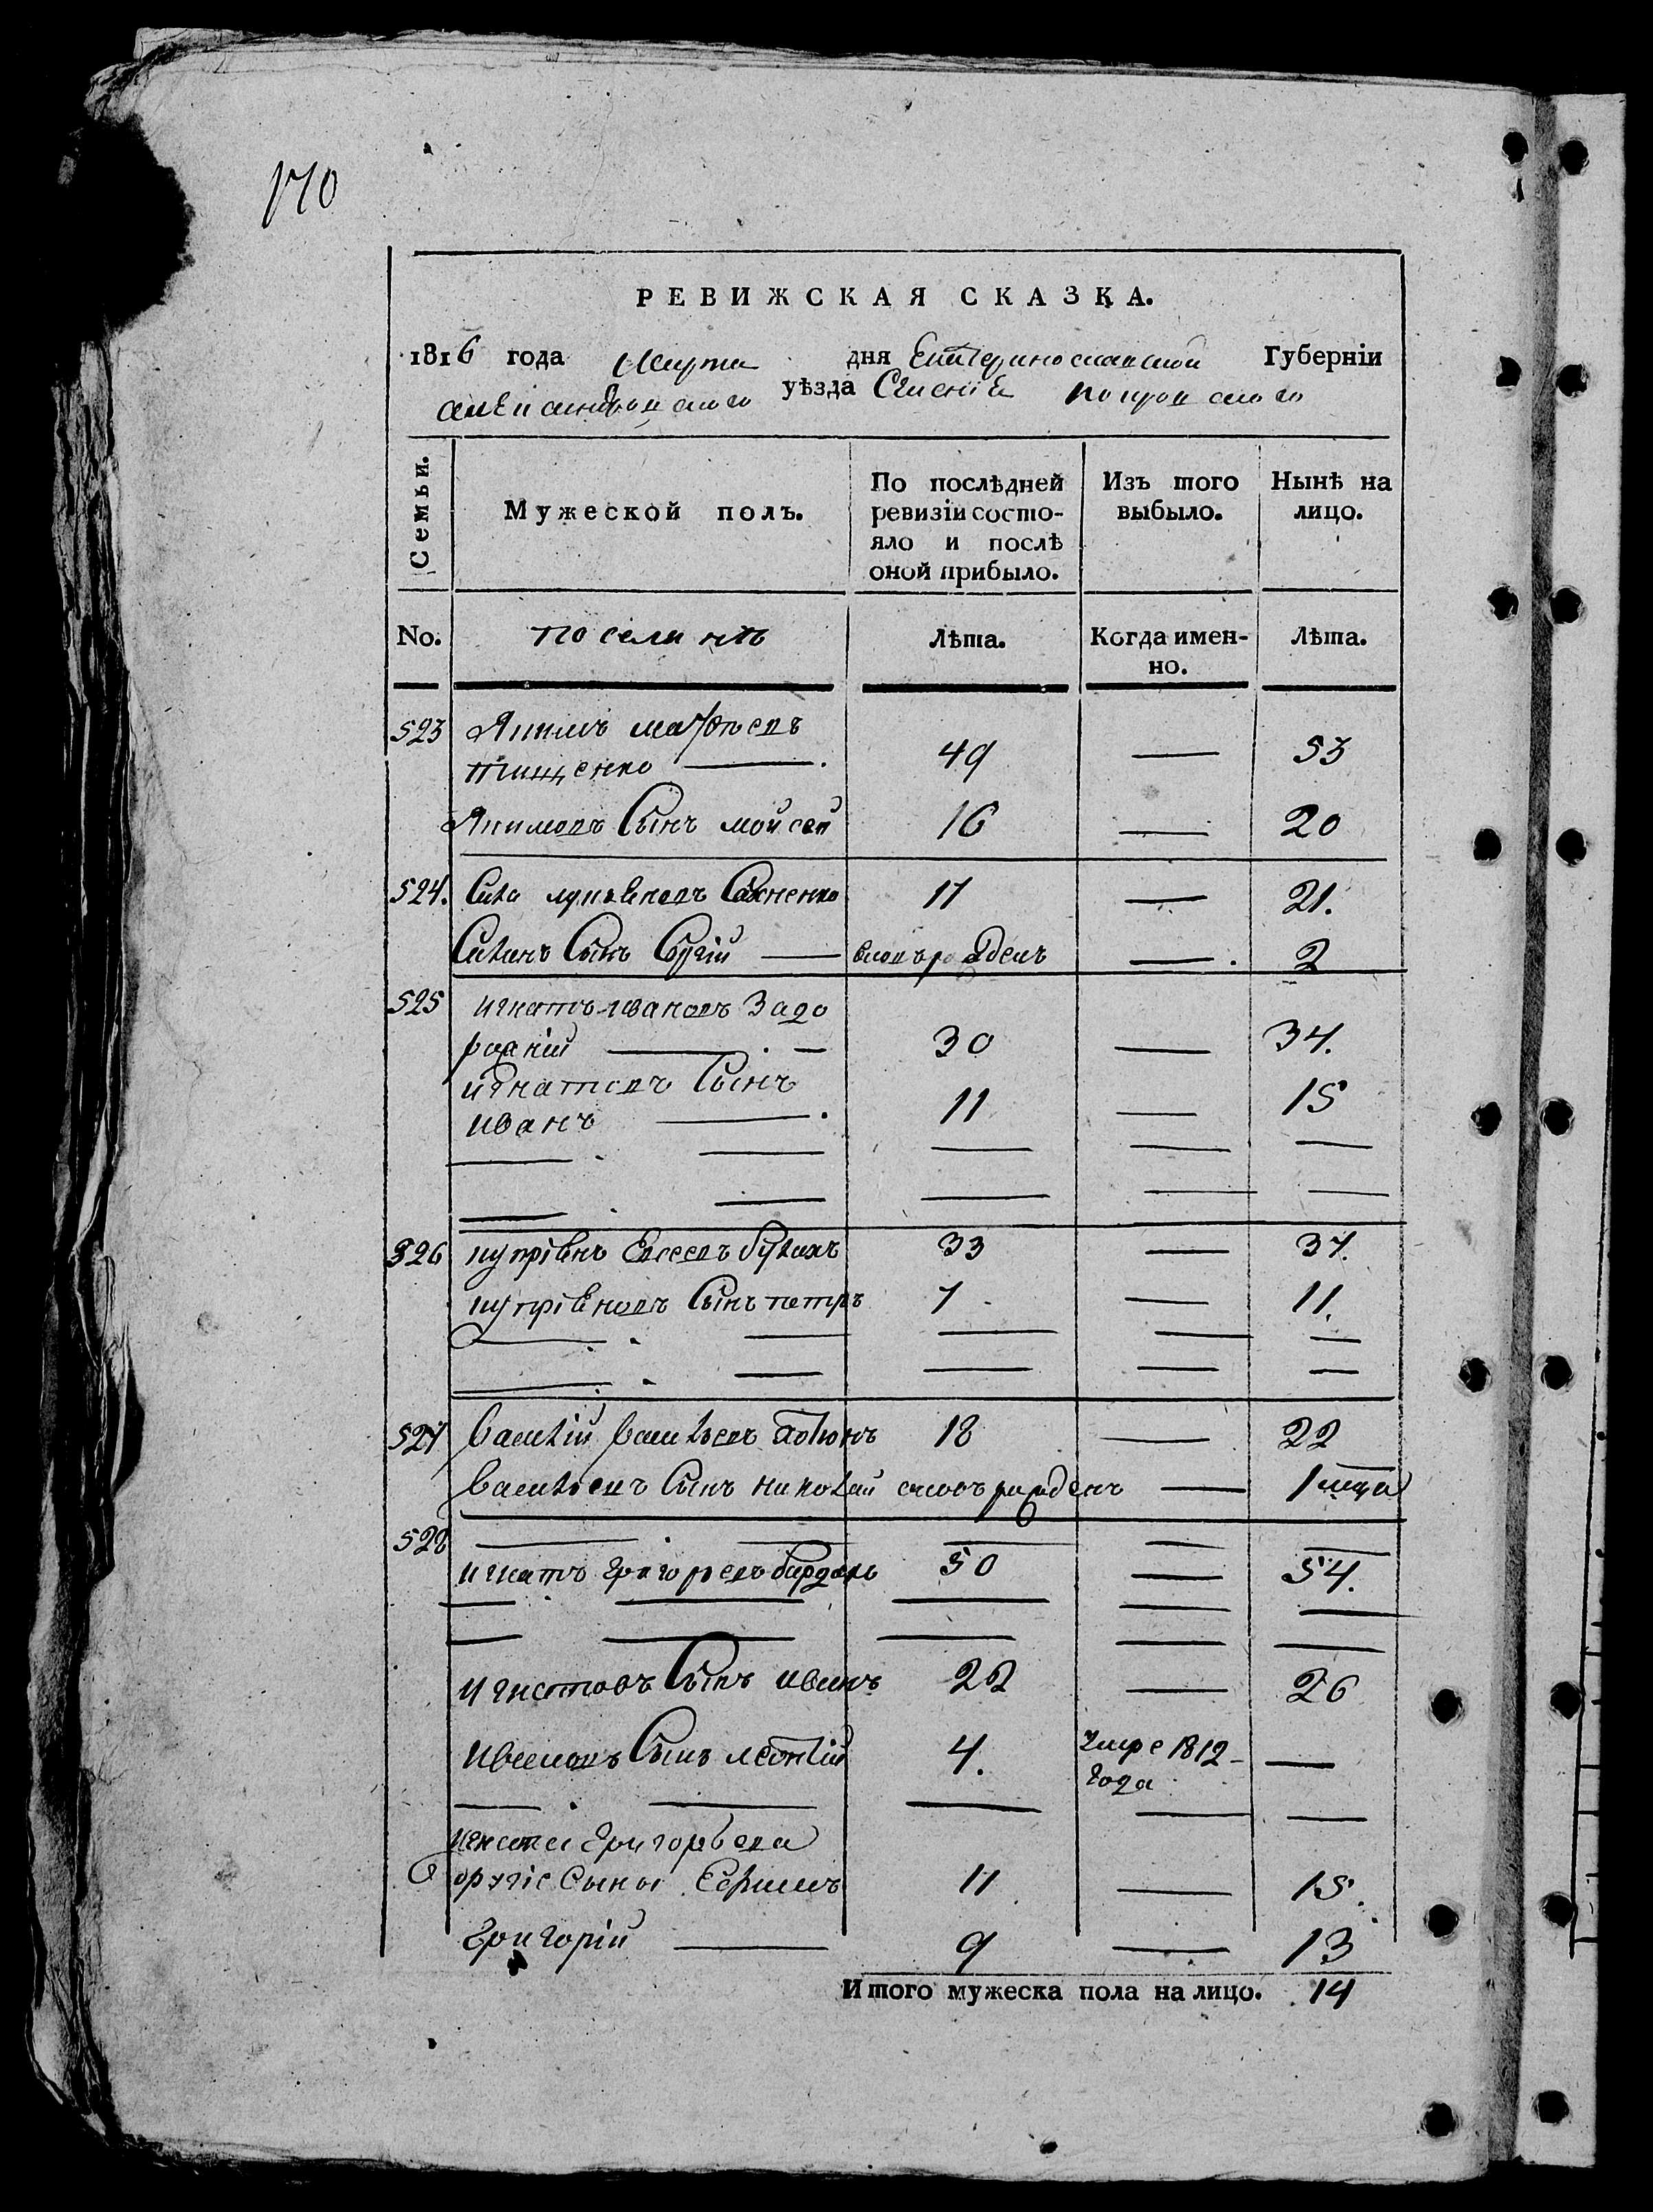 170
РЕВИЖСКАЯ СКАЗКА.
1816 года Марта дня Екатеринославской Губерніи
александровского уѣзда Селенія покровского
Семьи. Мужеской полъ. По послѣдней ревизіи состояло и послѣ оной прибыло. Изъ того выбыло. Нынѣ на лицо.
No. поселянъ Лѣта. Когда именно. Лѣта.
523 Якимъ матѳѣевъ
тищенко 49 — 53
Якимовъ Сынъ мойсей 16 — 20
524. Сила Сахненко 17 — 21.
Силинъ Сынъ Сергій — вновьрожденъ — 2
525 игнатъ ивановъ Задо
рожній — 30 — 34.
игнатовъ Сынъ
иванъ — 11 — 15
526 купріянъ Евсеевъ 33 — 37.
купріяновъ Сынъ петръ 7 — 11.
527 василій васильевъ 18 — 22
васильевъ Сынъ николай рожденъ — 1 меца
528
игнатъ григорьевъ 50 — 54.
игнатовъ Сынъ иванъ 22 — 26
ивановъ Сынъ леонтій 4. умре 1812 —
года
игната григорьева
другіе Сыны Ефимъ 11 — 15.
григорій — 9 — 13
Итого мужеска пола на лицо. 14